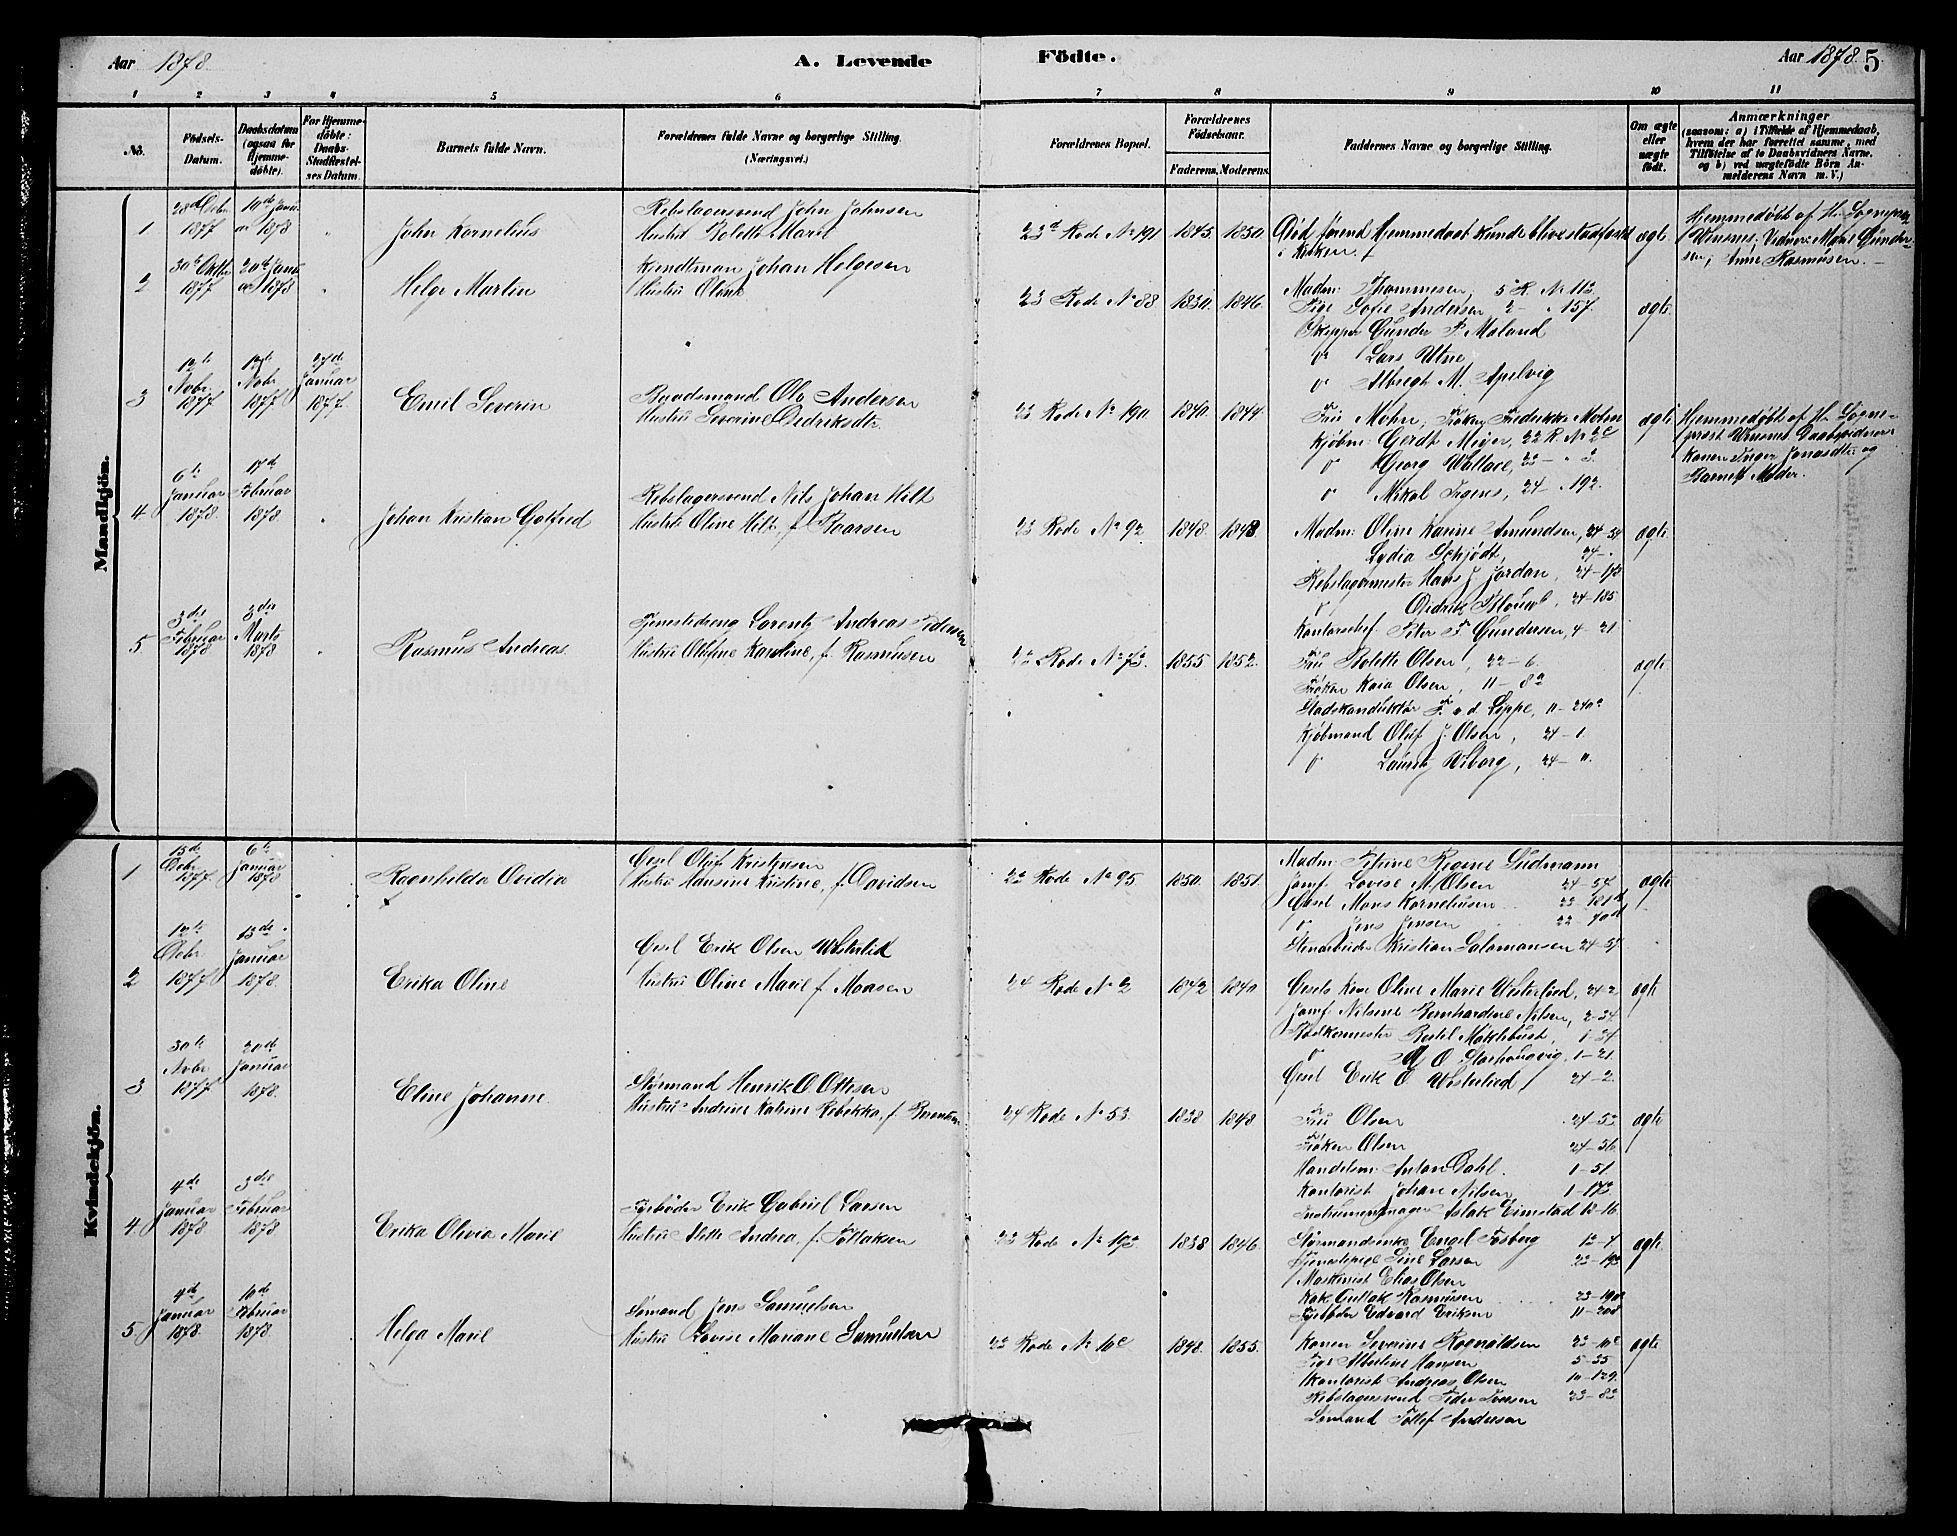 Aar 1878.
A. Levende
Födte.
Aar 1878.
5
1 2 3 4 5 6 7 8 9 10 11
No.
Födsels-Datum.
Daabsdatum (ogsaa for Hjemme-döbte).
For Hjemme-döbte: Daabs-Stadfæstel-ses Datum.
Barnets fulde Navn.
Forældrenes fulde Navne og borgerlige Stilling. (Næringsvei.)
Forældrenes Bopæl.
Forældrenes Födselsaar.
Faderens. Moderens.
Faddernes Navne og borgerlige Stilling.
Om ægte eller uægte födt.
Anmærkninger
(saasom: a) i Tilfælde af Hjemmedaab, hvem der har forrettet samme, med Tilföielse af to Daabsvidners Navne, og b) ved uægtefödte Börn An-melderens Navn m. V.)
Mandkjön.
1
28de Decbr 1877
10de Januar 1878
John Kornelius
Rebslagersvend John Johnsen
Hustru Bolette Marie
23de Rode No 191
1845. 1850.
Død førend Hjemmedaab kunde blive stadfæstet
i Kirken.
ægte
Hjemmedøbt af Hr. Sogneprest
Wensnes; Vidner: Mons Gunder-
sen, Anne Rasmusen.
2
30te Oktbr 1877
20de Januar 1878
Helge Martin
Kjendtman Johan Helgesen
Hustru Oline
23 Rode No 88
1830. 1846.
Madm: Thommesen, 5 R. No 113
Pige Sofie Andersen 2 - " 157.
Skipper Gunder P. Maland
do Lars Utne
do Albregt M. Apelvig
ægte
3
12te Novbr 1877
12te Novbr 1877
27de Januar 1877.
Emil Severin
Baadsmand Ole Andersen
Hustru Severine Didriksdtr.
23 Rode No 190
1840. 1844.
Fru Mohn, Frøken Fredrikke Mohn
Kjøbm: Gerdt Meyer, 22 R. No 2c
do Georg Wallace, 23 - " 3.
do Mikal Irgens, 24 - " 192.
ægte
Hjemmedøbt af Hr. Sogne-
prest Wensnes. Daabsvidner:
Konen Inger Jonasdtr og
Barnets Moder.
4
6te Januar 1878
17de Februar 1878.
Johan Kristian Gotfred
Rebslagersvend Nils Johan Hilt
Hustru Oline Hilt, f. Baarsen
23 Rode No 92
1848. 1848.
Madm: Oline Karine Amundsen, 24-54
Lydia Schjødt, 24-"
Rebslagermester Hans J. Jordan, 24-178
do Didrik 24-185
Kontorchef Peter F. Gundersen, 4-21
ægte
5
3die Februar 1878
3die Marts 1878
Rasmus Andreas.
Tjenestedreng Lorentz Andreas Pedersen
Hustru Karoline, f. Rasmusen
23 Rode No 73.
1855 1852.
Fru Bolette Olsen, 22-6.
Frøken Kaia Olsen, 11-8a
Stadskonduktør F. v. d. Lippe, 11-240a
Kjøbmand Oluf J. Olsen, 24-1.
do Lauritz Wiborg, 24-"
ægte
Kvindekjön.
1
15de Decbr 1877
6te Januar 1878
Ragnhilda Ovidia
Gesel Oluf Kristensen
Hustru Hansine Kristine, f. Davidsen
23 Rode No 95
1850. 1851.
Madm: Gudmann
Jomf. Lovise M. Olsen 24-54
Gesel Mons Korneliusen 22-181d
do Jens Jensen 22-70d
Stenarbeider Kristian Salamonsen 24-54
ægte
2
12te Decbr 1877
13de Januar 1878.
Erika Oline
Gesel Erik Olsen Westerlid
Hustru Oline Marie f. Monsen
24 Rode No 2
1842 1840
Gesels Kone Oline Marie Westerlied, 24-2
Jomf. Nilsine Bernhardine Nilsen, 2-34.
Bødkermester Bertel Møklebust, 1-34
do O. Storhougvig, 1-21.
Gesel Erik O. Westerlied 24-2.
ægte
3
30te Novbr 1877
20de Januar 1878.
Eline Johanne.
Styrmand Henrik O. Ottesen
Hustru Andrine Katrine Rebekka, f.
24 Rode No 53.
1838 1848
Fru Olsen 24-53
Frøken Olsen 24-56
Handelsm: Anton Dahl. 1-51.
Kontorist Johan Nilsen 1-173
Instrumentmager Aslak Eimstad 18-16
ægte
4
4de Januar 1878
3die Februar 1878.
Erika Olivia Marie
Fyrbøder Erik Gabriel Larsen
Hustru Mette Andrea, f. Tollaksen
23 Rode No 193
1838 1846.
Styrmandsenke Engel Fosberg 12-4
Tjenestepige Line Larsen 23-193
Maskinist Elias Olsen
Kok Gullak Rasmusen 23-190a
Fyrbøder Edvard Eriksen 11-208
ægte
5
4de Januar 1878.
10de Februar 1878.
Helga Marie
Sømand Jens Samuelsen
Hustru Lovise Mariane Samuelsen
23 Rode No 10c
1848. 1855.
Konen Severine Rognaldsen 23-10c
Pige Albertine Hansen 5-35
Kontorist Andreas Olsen 10-129.
Rebslagersvend Peder Iversen 23-82
Sømand Tollef Andersen
ægte